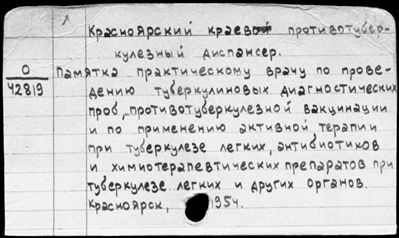 Красноярский краевой противотубер-
кулезный диспансер.
О
42819
Памятка практическому врачу по прове-
дению туберкулиновых диагностических
проб, противотуберкулезной вакцинации
и по применению активной терапии
при туберкулезе легких, антибиотиков
и химиотерапевтических препаратов при
туберкулезе легких и других органов.
Красноярск, 1954.